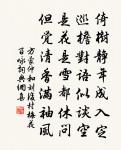 倚樹靜年成入定
巡檐對語似談空
是花是雪都休問
但覺清香滿袖風
方蒙仲和劉後村梅花
百詠詞典網集